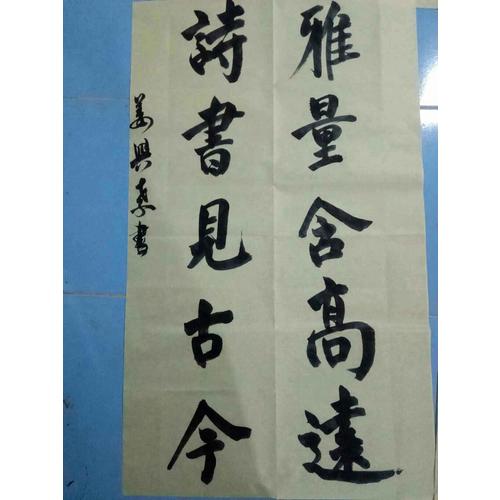 雅量含高遠
詩書見古今
姜興季書